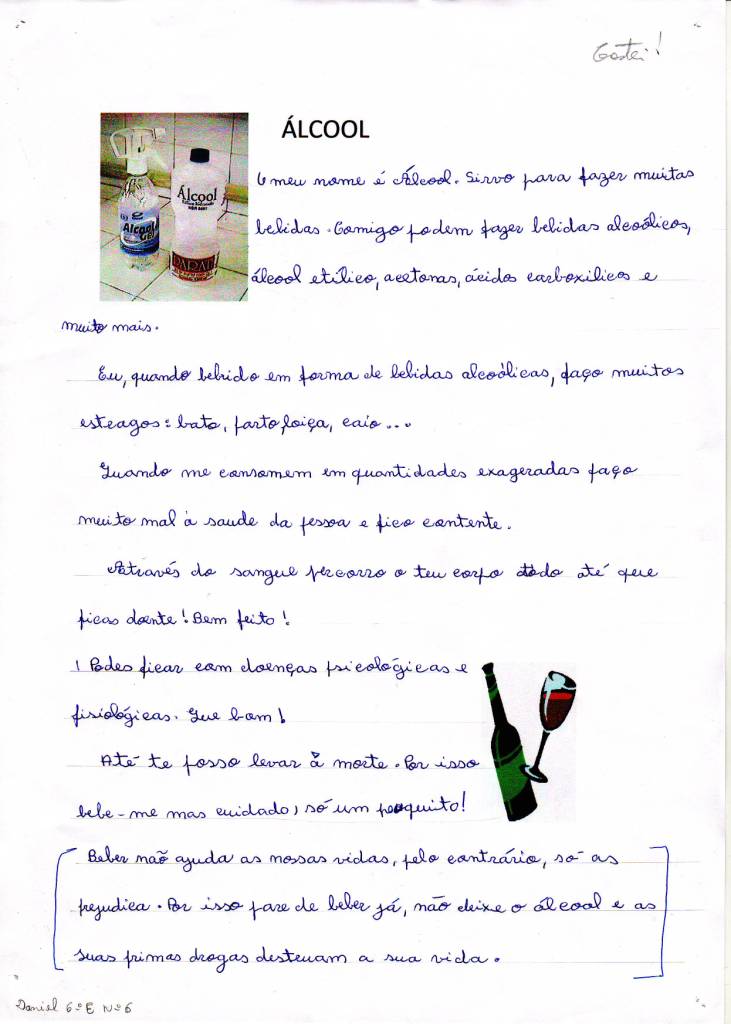 Gostei!
ÁLCOOL
O meu nome é Álcool. Sirvo para fazer muitas
bebidas. Comigo podem fazer bebidas alcoólicas,
álcool etílico, acetonas, ácidos carboxilicos e
muito mais.
Álcool
Álcool
Gel
Eu, quando bebido em forma de bebidas alcoólicas, faço muitos
estragos: bato, parto loiça, caio...
Quando me consomem em quantidades exageradas faço
muito mal à saude da pessoa e fico contente.
Através do sangue percorro o teu corpo todo até que
ficas doente! Bem feito!
! Podes ficar com doenças psicológicas e
fisiológicas. Que bom!
Até te posso levar à morte. Por isso
bebe-me mas cuidado, só um poquito!
Beber não ajuda as nossas vidas, pelo contrário, só as
prejudica. Por isso pare de beber já, não deixe o álcool e as
suas primas drogas destruam a sua vida.
Daniel 6º E Nº 6